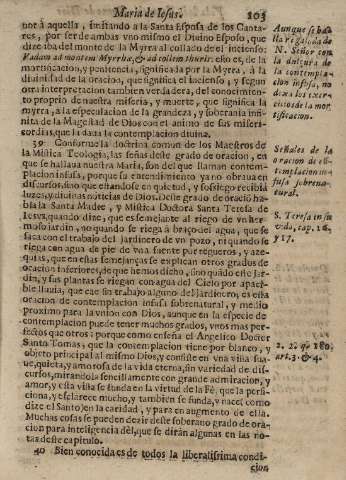 Maria de Iesus. 103
nor à aquella, instando a la Santa Esposa de los Cantares,
por ser de ambas vno mismo el Diuino Esposo, que
dize iba del monte de la Myrra al collado del incienso:
Vadam ad montem Myrrhæ, & ad collem thuris: esto es, de la
mortificacion, y penitencia, significada por la Myrra, a la
diuinidad de la oracion, que significa el incienso, y segun
otra interpretacion tambien verdadera, del conocimiento
proprio de nuestra miseria, y muerte, que significa la
myrra, a la especulacion de la grandeza, y soberania infinita
de la Magestad de Dios con el animo de sus misericordias,
que la daua la contemplacion diuina.
39 Conforme la doctrina comun de los Maestros de
la Mistica Teologia, las señas deste grado de oracion, en
que se hallaua nuestra Maria, son del que llaman contemplacion
infusa, porque su entendimiento ya no obraua en
discursos, sino que estandose en quietud, y sossiego recibia
luzes, y diuinas noticias de Dios. Deste grado de oracio habla
la Santa Madre, y Mistica Doctora Santa Teresa de
Iesus, quando dize, que es semejante al riego de vn hermoso
jardin, no quando se riega à braço del agua, que se
saca con el trabajo del jardinero de vn pozo, ni quando se
riega con agua de pie de vna fuente por regueros, y azequias,
que en estas semejanças se explican otros grados de
oracion inferiores, de que hemos dicho, sino quãdo este jardin,
y sus plantas se riegan con agua del Cielo por apacible
lluuia, que cae sin trabajo alguno del jardinero, es esta
oracion de contemplacion infusa sobrenatural, y medio
proximo para la vnion con Dios, aunque en la especie de
contemplacion puede tener muchos grados, vnos mas perfectos
que otros: porque como enseña el Angelico Doctor
Santo Tomas, que la contemplacion tiene por blanco, y
objeto principal al mismo Dios, y consiste en vna vista suaue,
quieta, y amorosa de la vida eterna, sin variedad de discursos,
mirandola sencillamente con grande admiracion, y
amor, y esta vista se funda en la virtud de la Fè, que la perficiona,
y esclarece mucho, y tambien se funda, y nace (como
dize el Santo) en la caridad, y para en augmento de ella.
Muchas cosas se pueden dezir deste soberano grado de oracion
para inteligencia dèl, que se dirán algunas en las notas
deste capitulo.
40 Bien conocida es de todos la liberalissima condicion
Aunque se hallaba
regalada de
N. Señor con
la dulçura de
la contemplacion
infusa, no
dexa los exercicios
de la mortificacion.
Señales de la
oracion de contemplacion
infusa
sobrenatural.
S. Teresa in su
vida, cap. 14.
y 17.
2. 2. q. 180.
art. 3. & 4.